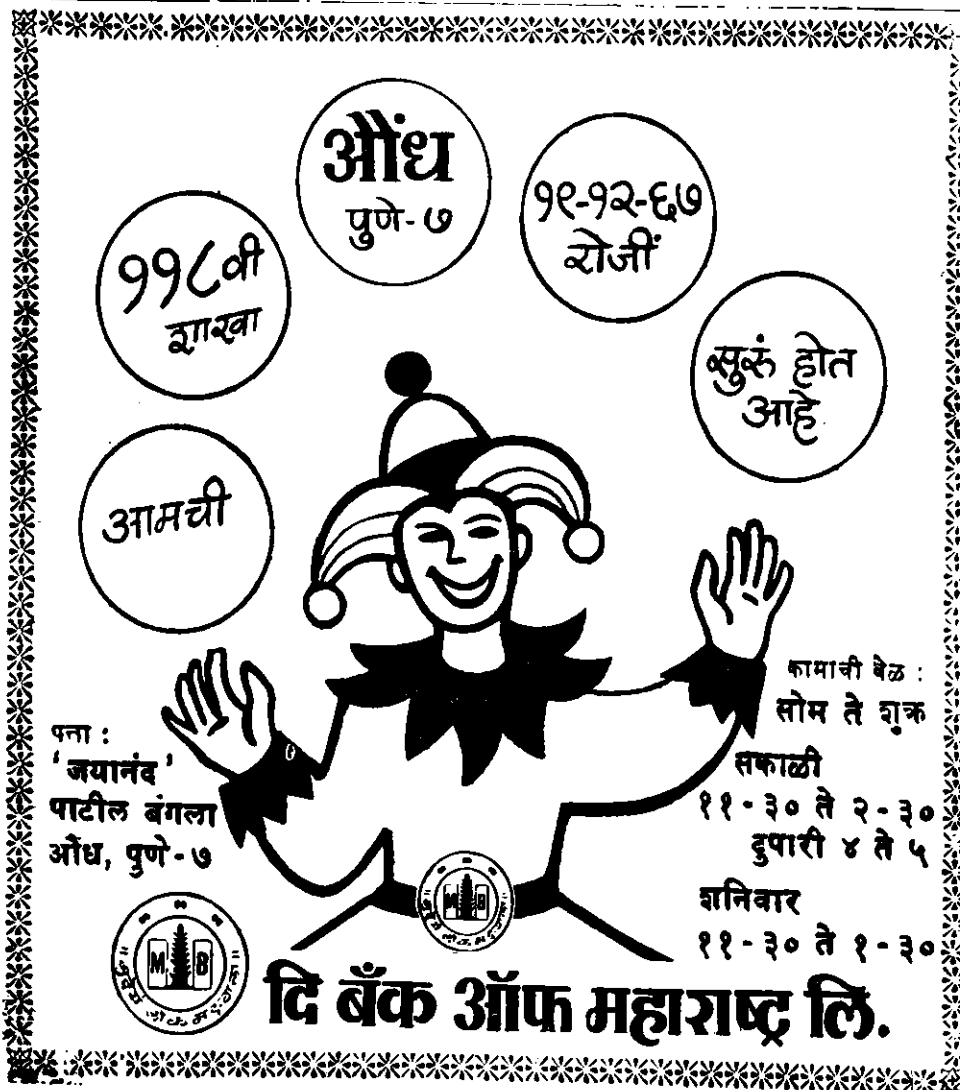 आमची
११८वी
शाखा
औंध
पुणे-७
१९-१२-६७
रोजीं
सुरुं होत
आहे
पत्ता :
'जयानंद'
पाटील बंगला
औंध, पुणे-७
कामाची वेळ :
सोम ते शुक्र
सकाळी
११-३० ते २-३०
दुपारी ४ ते ५
शनिवार
११-३० ते १-३०
M B
M B
दि बँक ऑफ महाराष्ट्र लि.